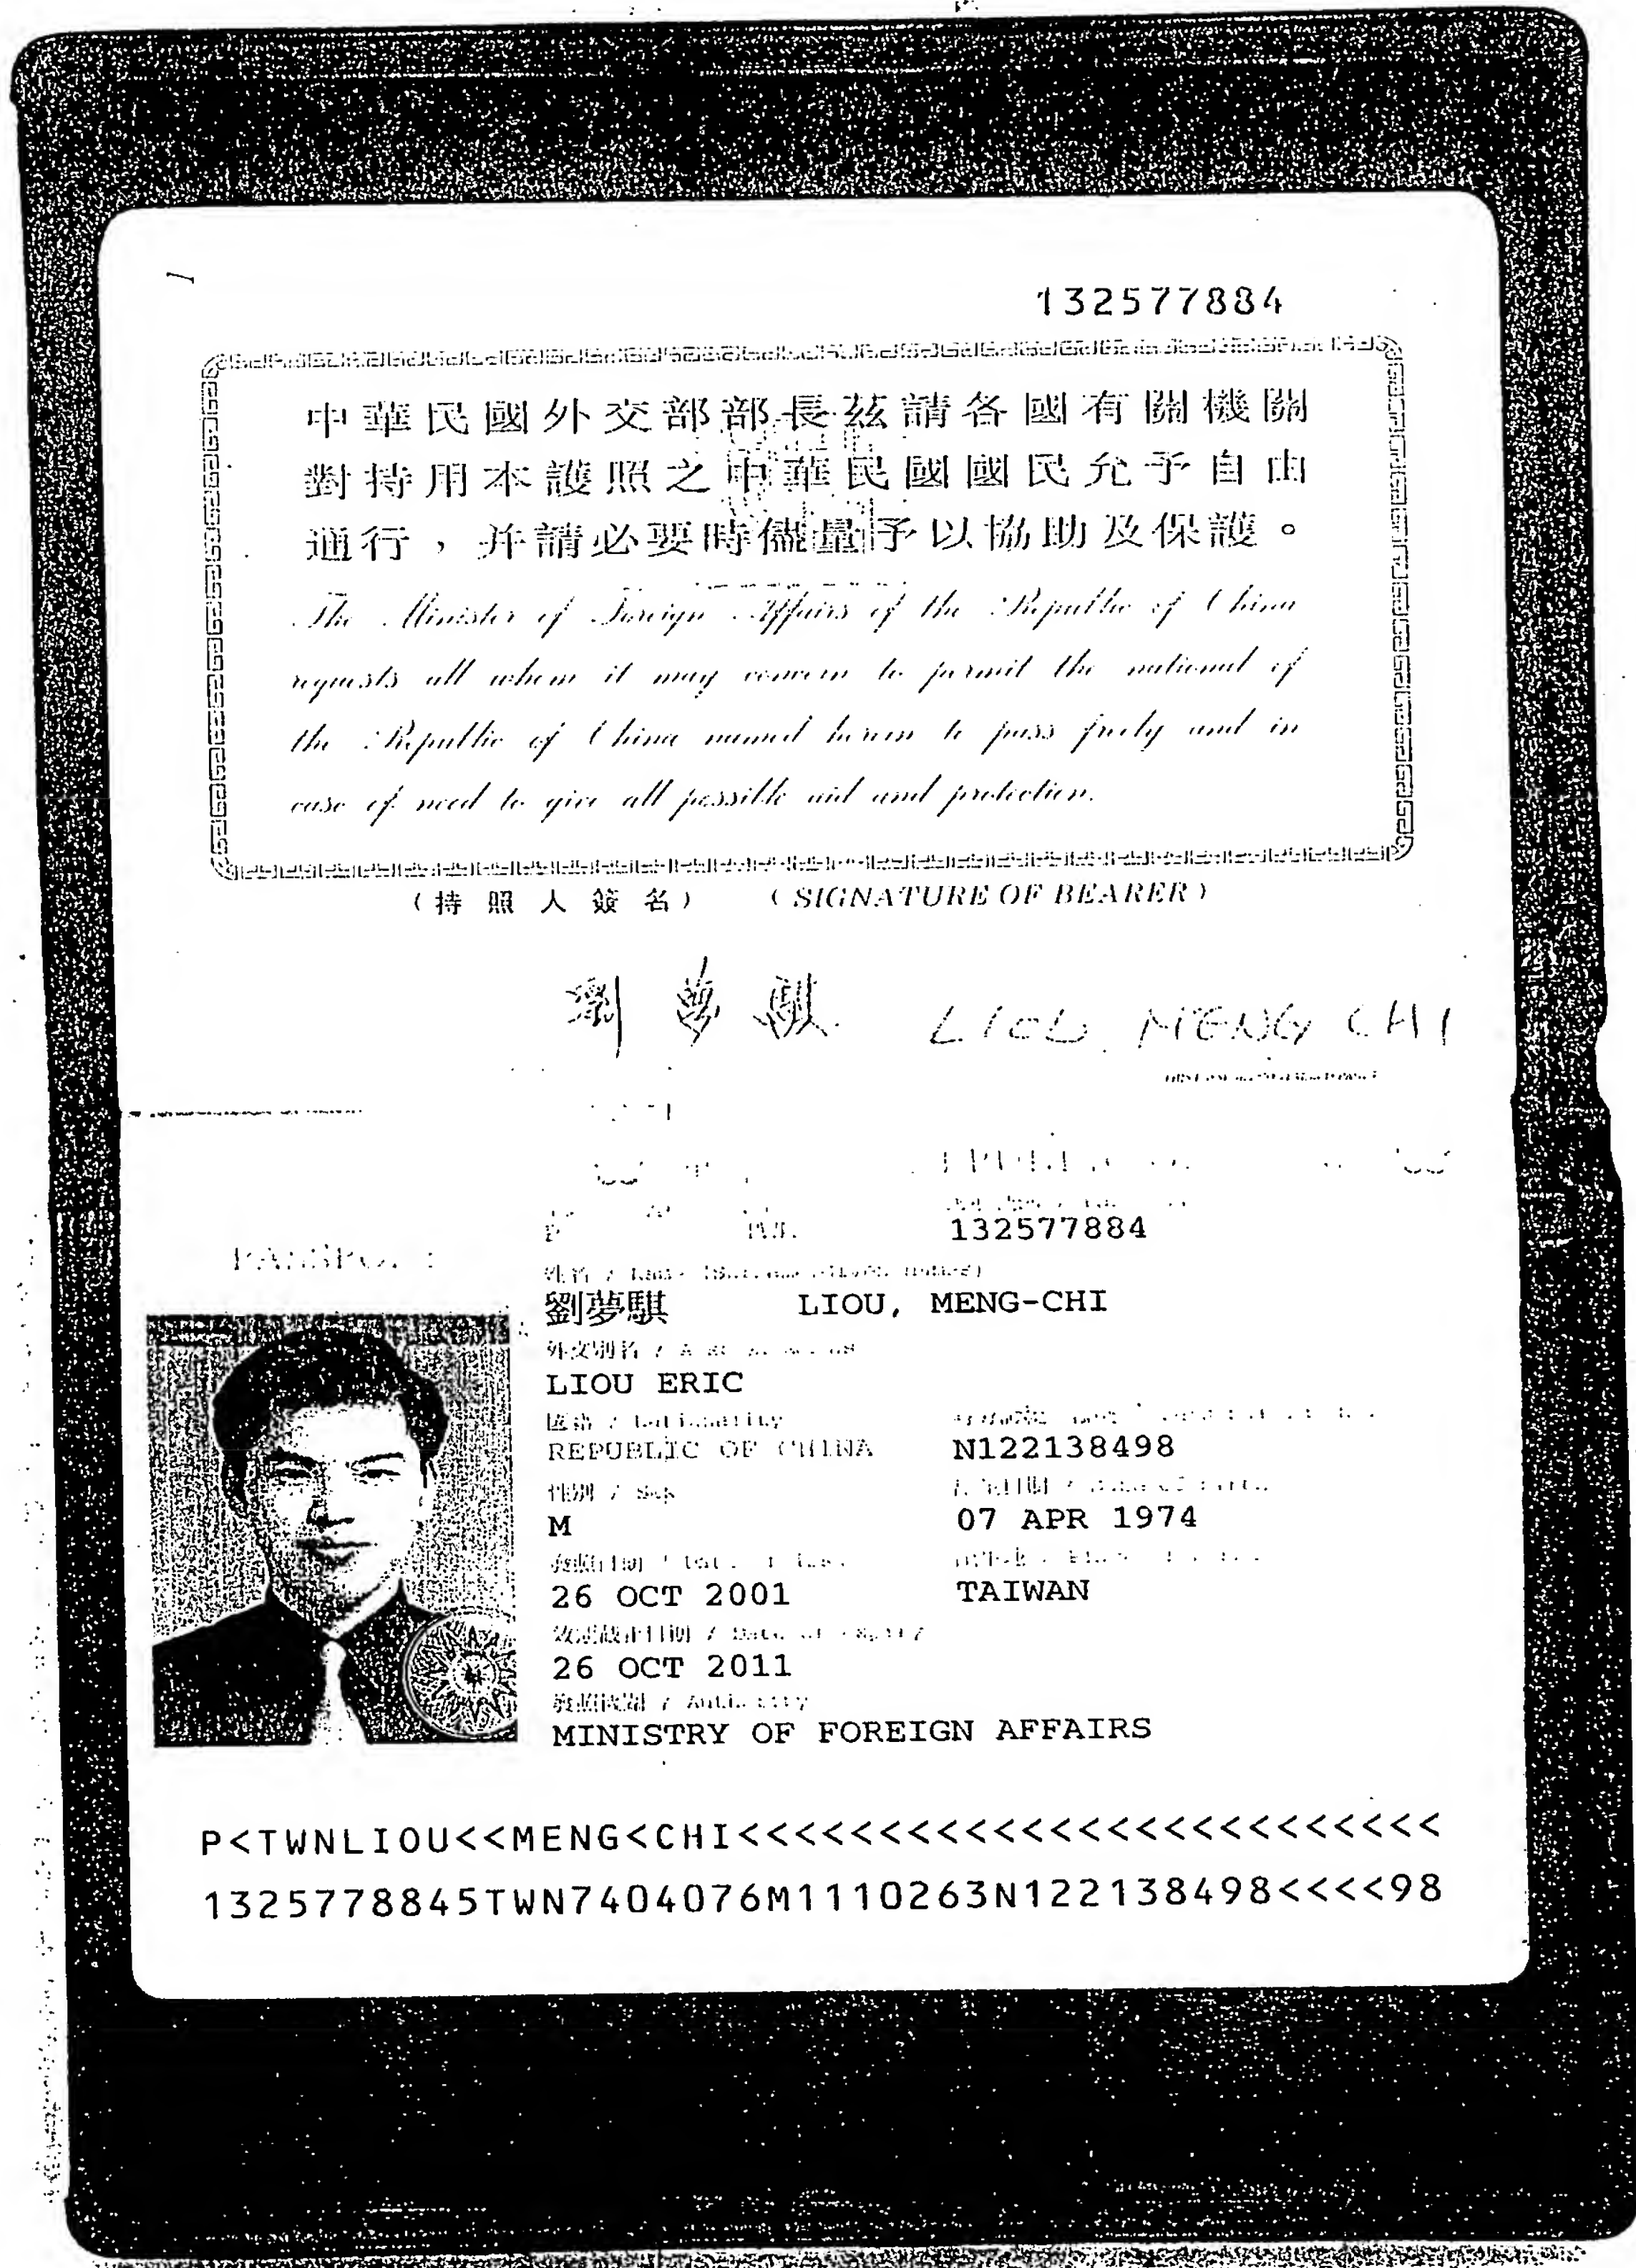 132577884
中華民國外交部部長茲請各國有關機關
對持用本護照之中華民國國民允予自由
通行，并請必要時儘量予以協助及保護。
The Minister of Foreign Affairs of the Republic of China
requests all whom it may concern to permit the national of
the Republic of China named herein to pass freely and in
case of need to give all possible aid and protection.
(持照人簽名) (SIGNATURE OF BEARER)
劉夢騏 LIOU MENG CHI
P 132577884
PASSPO
劉夢騏 LIOU, MENG-CHI
外文別名 /
LIOU ERIC
國籍 / Nationality
REPUBLIC OF CHINA N122138498
性別 / Sex
M 07 APR 1974
26 OCT 2001 TAIWAN
效期截止日期 / Date of expiry
26 OCT 2011
發照機關 / Authority
MINISTRY OF FOREIGN AFFAIRS
P<TWNLIOU<<MENG<CHI<<<<<<<<<<<<<<<<<<<<<<<<<
1325778845TWN7404076M1110263N122138498<<<<98